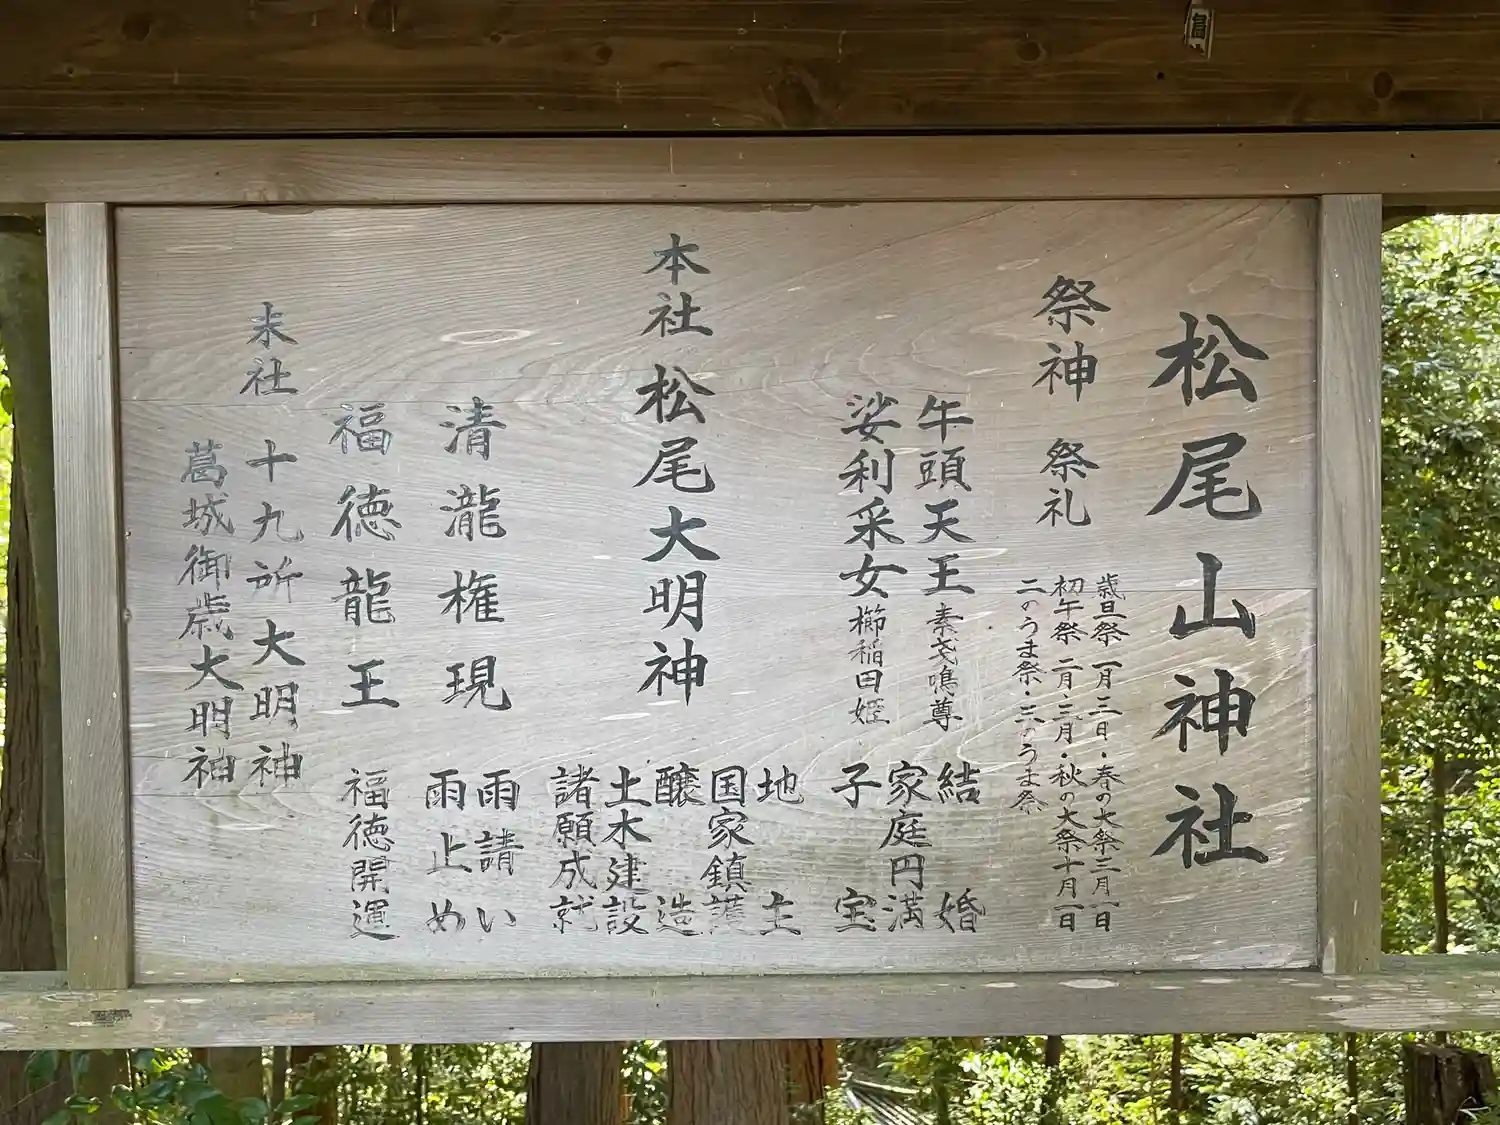 松尾山神社
祭神 祭礼
歳旦祭 一月二日・春の大祭三月一日
初午祭 二月・三月・秋の大祭十月一日
二のうま祭・三のうま祭
牛頭天王 素戔鳴尊
娑利采女 櫛稲田姫
結婚
家庭円満
子宝
本社 松尾大明神
地主
国家鎮護
醸造
土木建設
諸願成就
清瀧権現
雨請い
雨止め
福徳龍王 福徳開運
末社 十九所大明神
葛城御歳大明神